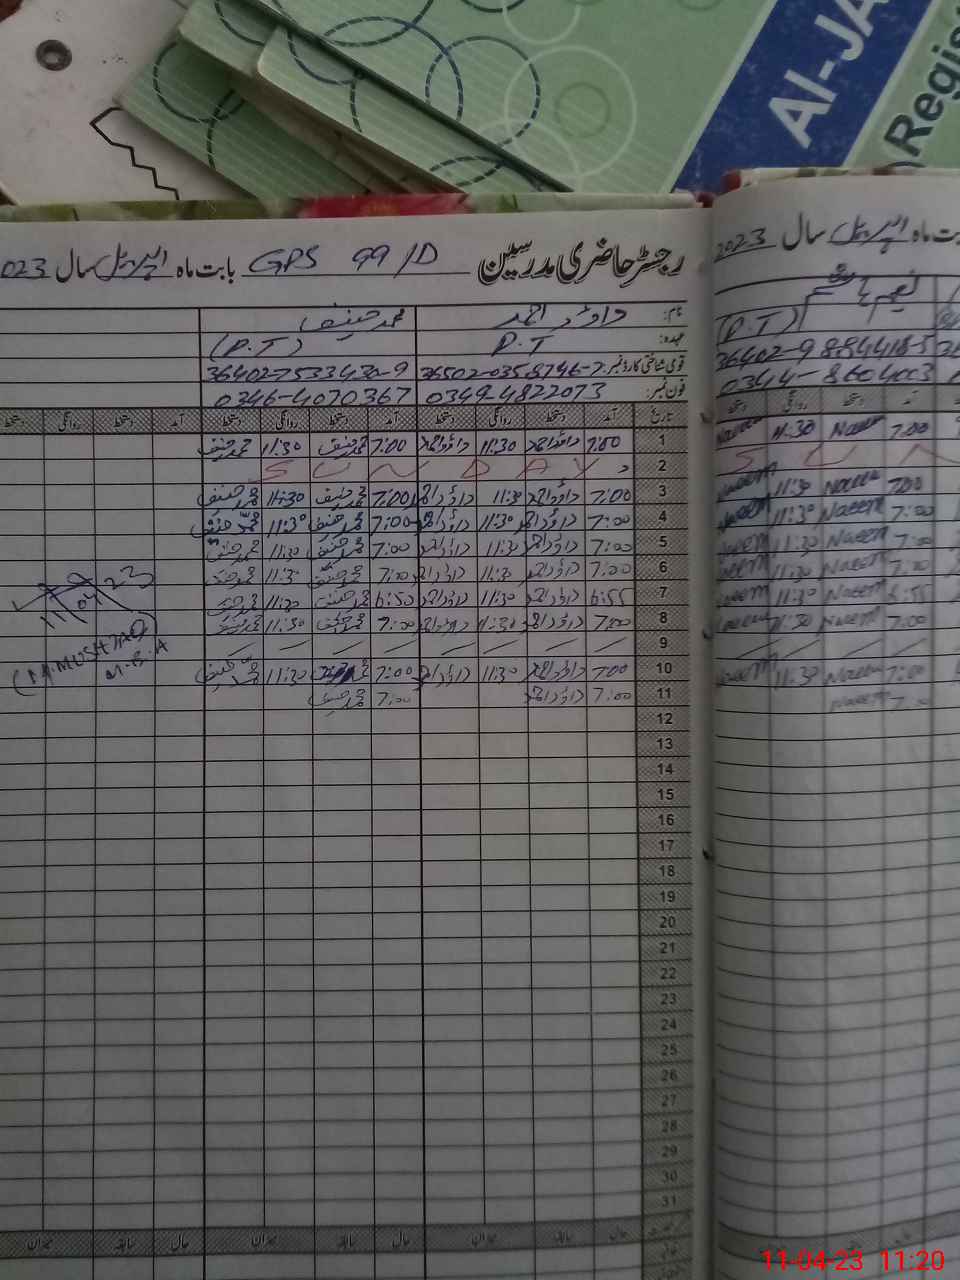 Al-JA
Regis
رجسٹر حاضری مدرسین GPS 99/D بابت ماہ اپریل سال 2023
نام: داؤد احمد محمد حنیف
عہدہ: P.T (P.T)
قومی شناختی کارڈ نمبر: 36502-0358746-7 36402-7533430-9
فون نمبر: 0349-4822073 0346-4070367
تاریخ آمد دستخط روانگی دستخط آمد دستخط روانگی دستخط آمد دستخط روانگی دستخط
1 7:00 داؤد احمد 11:30 داؤد احمد 7:00 محمد حنیف 11:30 محمد حنیف
2 SUNDAY
3 7:00 داؤد احمد 11:30 داؤد احمد 7:00 محمد حنیف 11:30 محمد حنیف
4 7:00 داؤد احمد 11:30 داؤد احمد 7:00 محمد حنیف 11:30 محمد حنیف
5 7:00 داؤد احمد 11:30 داؤد احمد 7:00 محمد حنیف 11:30 محمد حنیف
6 7:00 داؤد احمد 11:30 داؤد احمد 7:00 محمد حنیف 11:30 محمد حنیف
7 6:55 داؤد احمد 11:30 داؤد احمد 6:50 محمد حنیف 11:30 محمد حنیف
8 7:00 داؤد احمد 11:30 داؤد احمد 7:00 محمد حنیف 11:30 محمد حنیف
9
10 7:00 داؤد احمد 11:30 داؤد احمد 7:00 محمد حنیف 11:30 محمد حنیف
11 7:00 داؤد احمد 7:00 محمد حنیف
12
13
14
15
16
17
18
19
20
21
22
23
24
25
26
27
28
29
30
31
حال سابقہ میزان حال سابقہ میزان حال سابقہ میزان
11/04/23
(M.MUSHTAQ
M.B.A
ماہ اپریل سال 2023
نعیم ہاشم
(P.T)
36402-9884418-5
0344-8604003
آمد دستخط روانگی دستخط
7:00 Naeem 11:30 Naeem
S U N
7:00 Naeem 11:30 Naeem
7:00 Naeem 11:30 Naeem
7:00 Naeem 11:30 Naeem
7:00 Naeem 11:30 Naeem
6:55 Naeem 11:30 Naeem
7:00 Naeem 11:30 Naeem
7:00 Naeem 11:30 Naeem
7:00 Naeem
11-04-23 11:20